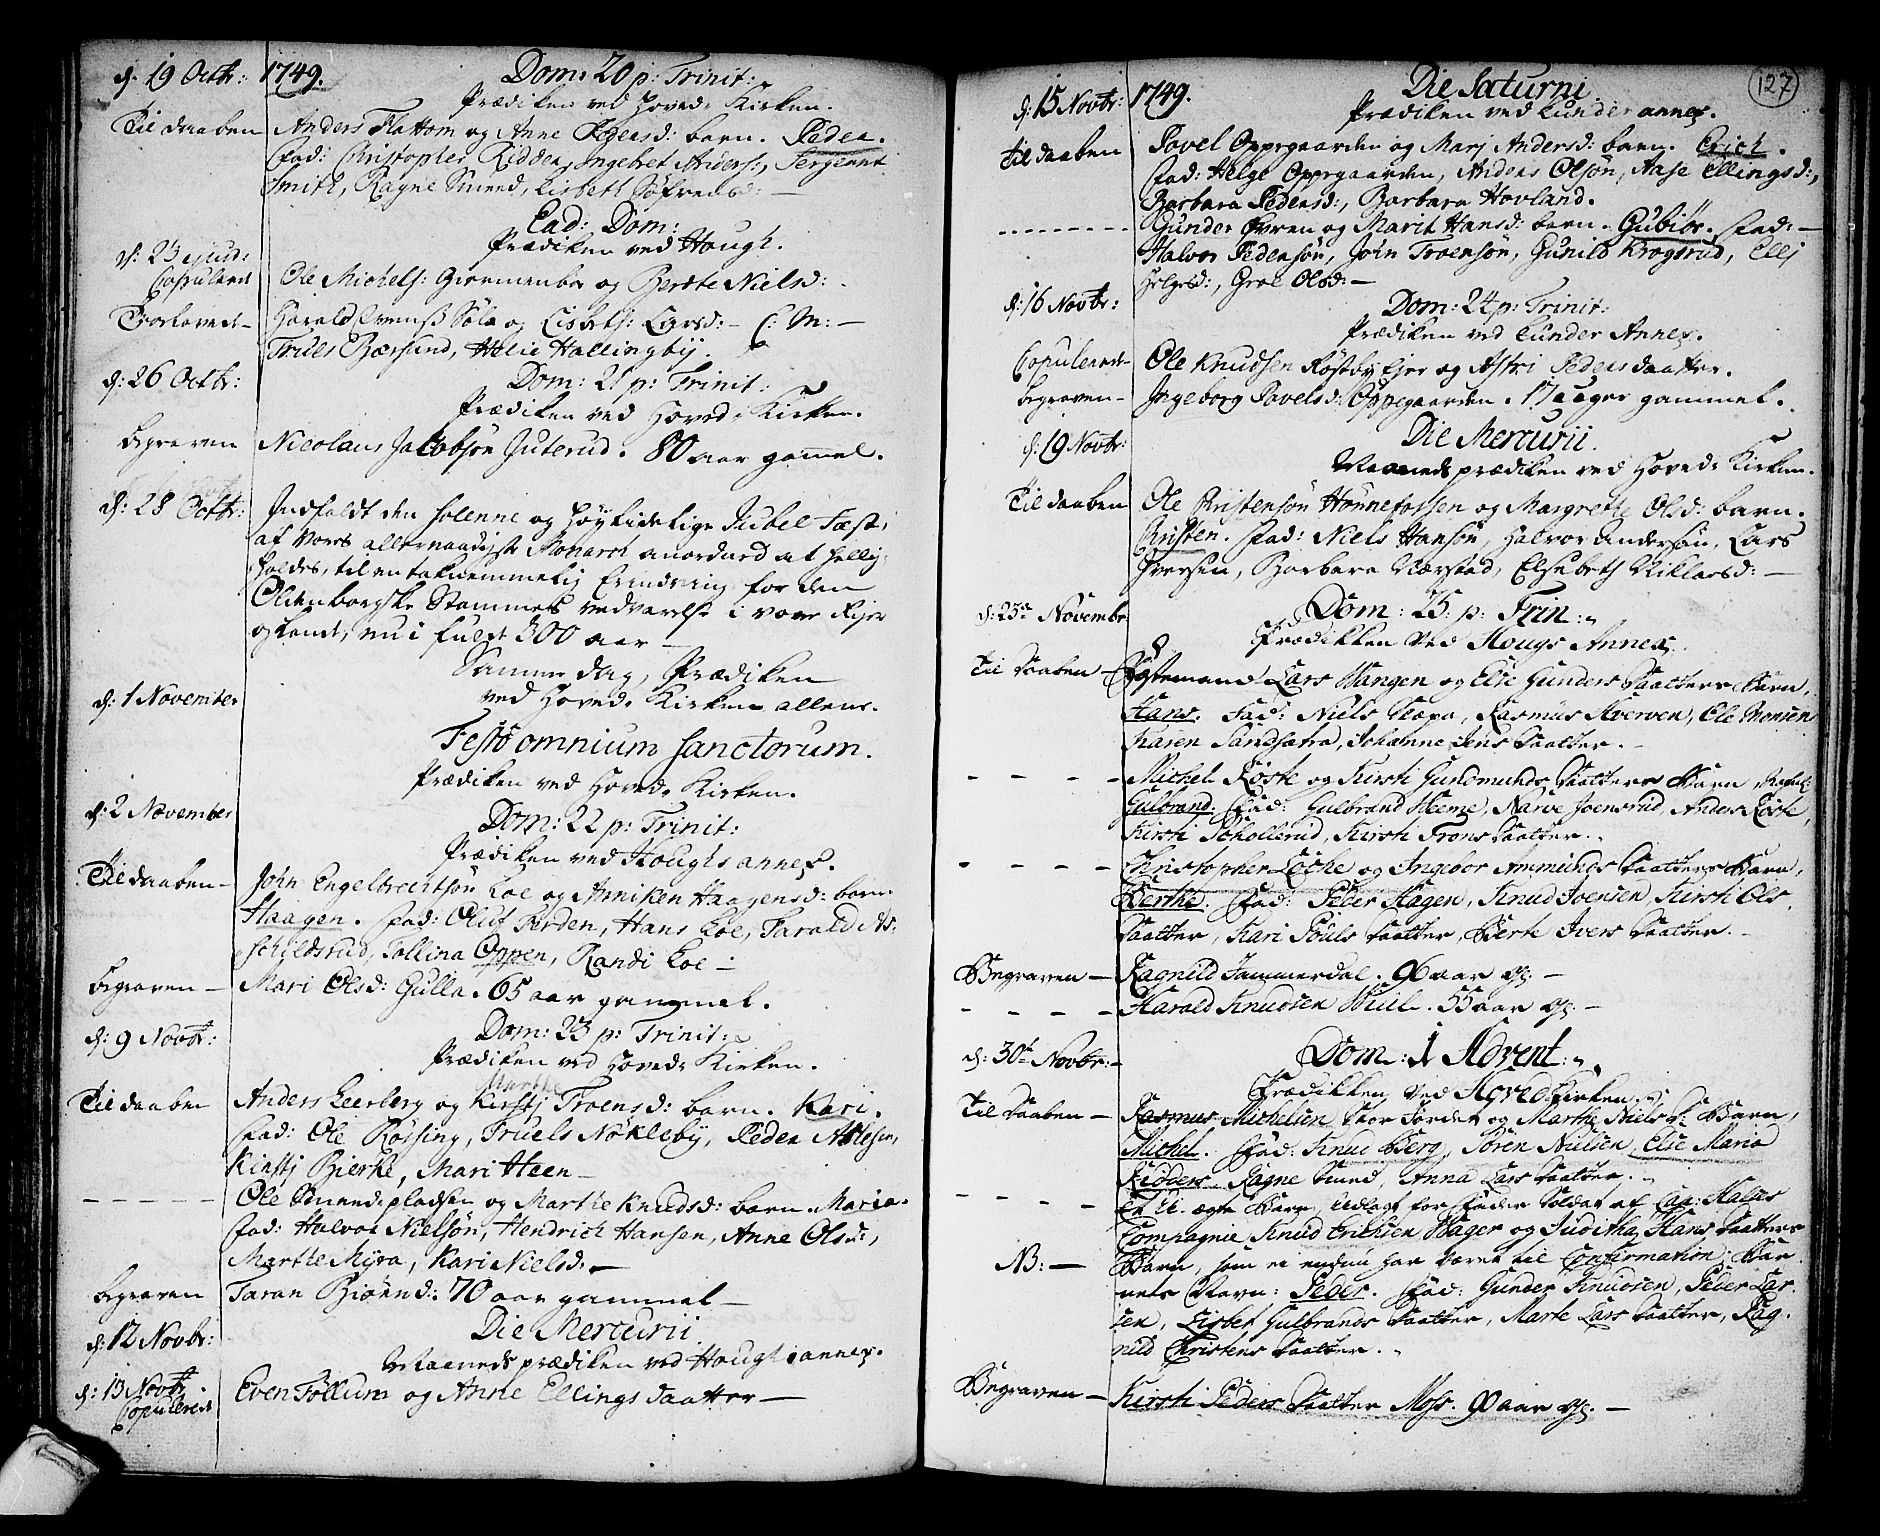 d. 19 Octbr: 1749. Dom: 20 p: Trinit:
Prædiken ved Hoved-Kirken.
Til daaben Anders Flattom og Anne Pedersd: barn. Peder.
Fad: Christopher Ridder, Ingebret Anders:, Sergeant
Smith, Ragne Smed, Lisbeth Søfrensd: —
Ead: Dom:
Prædiken ved Hough.
d: 23 ejusd:
Copuleret Ole Michels: og Berthe Nielsd:
Trolovet — Harald Svens: og Lisbeth Larsd: — C: M: —
Truls Bærsund, Helie Hallingby.
d: 26 Octbr: Dom: 21 p: Trinit:
Prædiken ved Hoved-Kirken.
Begraven Nicolaus Jacobsøn Juterud. 80 aar gammel.
d: 28 Octbr: Indfaldt den solenne og høytidelige Jubel Fæst,
af vores allernaadigste Monarch anordnet at hellig-
holdes, til en taknemmelig Erindring for den
Oldenborgske Stammes vedvarelse i vore Riger
og Lande, nu i fulde 300 aar —
Samme dag, Prædiken
ved Hoved-Kirken allene.
d: 1 November
Festo omnium sanctorum.
Prædiken ved Hoved-Kirken.
d: 2 November
Dom: 22 p: Trinit:
Prædiken ved Houghs annex.
Til daaben — John Engelbrechtsøn Loe og Anniken Haagensd: barn
Haagen. Fad: Oluf Verden, Hans Loe, Harald As-
schildsrud, Tollina Oppen, Randi Loe —
Begraven — Mari Olsd: Gulla. 65 aar gammel.
d: 9 Novbr: Dom: 23 p: Trinit:
Prædiken ved Hoved-Kirken.
Marthe
Til daaben Anders Leerberg og Kirstj Troensd: barn. Kari.
Fad: Ole Røssing, Truels Nøkleby, Peder Ablesen,
Kirstj Bierke, Mari Hoen —
— — — — — Ole Smedpladsen og Marthe Knudsd: barn. Maria.
Fad: Halvor Nielsøn, Hendrich Hansen, Anne Olsd:,
Marthe Myra, Kari Nielsd: —
Begraven Taran Biørnd: 70 aar gammel —
d: 12 Novbr: Die Mercurii
Maanedsprædiken ved Hough annex.
d: 13 Novbr
Copuleret Even Føllum og Anne Ellings daatter —
127
d: 15 Novbr: 1749. Die Saturni.
Prædiken ved Lunder annex.
Til daaben Povel Oppegaarden og Marj Andersd: barn. Erich.
Fad: Helge Oppegaarden, Anders Olsøn, Aase Ellingsd:,
Barbara Pedersd:, Barbara Hovland.
- - - - - - - - - Gunder Øvren og Marit Hansd: barn. Gubiør. Fad: —
Halvor Pedersøn, John Troensøn, Gunild Krogsrud, Ellj
Helgesd:, Groe Olsd: —
d: 16 Novbr: Dom: 24 p: Trinit:
Prædiken ved Lunder Annex.
Copuleret — Ole Knudsen Røstbyejer og Astri Peders daatter.
Begraven — Ingeborg Povelsd: Oppegaarden. 17 uger gammel.
d: 19 Novbr: Die Mercurii.
Maanedsprædiken ved Hoved-Kirken.
Til daaben Ole Christensøn Hønnefossen og Margrethe Olsd: barn.
Christen. Fad: Niels Hansøn, Halvor Andersøn, Lars
Iversen, Barbara Værstad, Elsebeth Niklasd: —
d: 23de Novembr: Dom: 25. p: Trin:
Prædikken ved Hougs Annex.
Til Daaben — Lars Wangen og Else Gunders Daatters Barn,
Hans. Fad: Niels Skopa, Rasmus Hverven, Ole Monsen
Karen Sandsætra, Johanne Jens Daatter. —
— — — — Michel Røske og Kirsti Gundmunds Daatters Barn
Gulbrand. Fad: Gulbrand Heeme, Narve Joensrud, Anders Røske,
Kirsti Schollerud, Kirsti Trons Daatter.
— — — — Christopher Løche og Ingebor Ammunds Daatters Barn,
Berthe. Fad: Peder Hagen, Knud Iversen, Kirsti Ols
Daatter, Kari Pouls Daatter, Berte Ivers Daatter. —
Begraven — Ragnild Jammerdal. 96 aar gl. —
— — — — Harald Knudsen Wiul. 55 aar gl. —
d: 30te Novbr: — Dom: 1 Advent:
Prædikken ved Hovedkirken.
Til Daaben — Rasmus Michelsen Stor Jordet og Marthe Niels D: Barn,
Michel. Fad: Knud Berg, Søren Nielsen, Else Maria
Ridders, Ragne Smed, Anna Lars Daatter.
— — — — Et U-ægte Barn, udlagt for Fader Soldat af Cap: Hals's
Compagnie Knud Erichsen Hager og Juditha Hans Daatters
NB: — Barn, som ei endnu har været til Confirmation: Bar-
nets Navn: Peder. Fad: Gunder Knudsen, Peder Lar-
sen, Lisbet Gulbrands Daatter, Marte Lars Daatter, Rag-
nild Christens Daatter.
Begraven — Kirsti Peders Daatter Moss. 90 aar gl. —